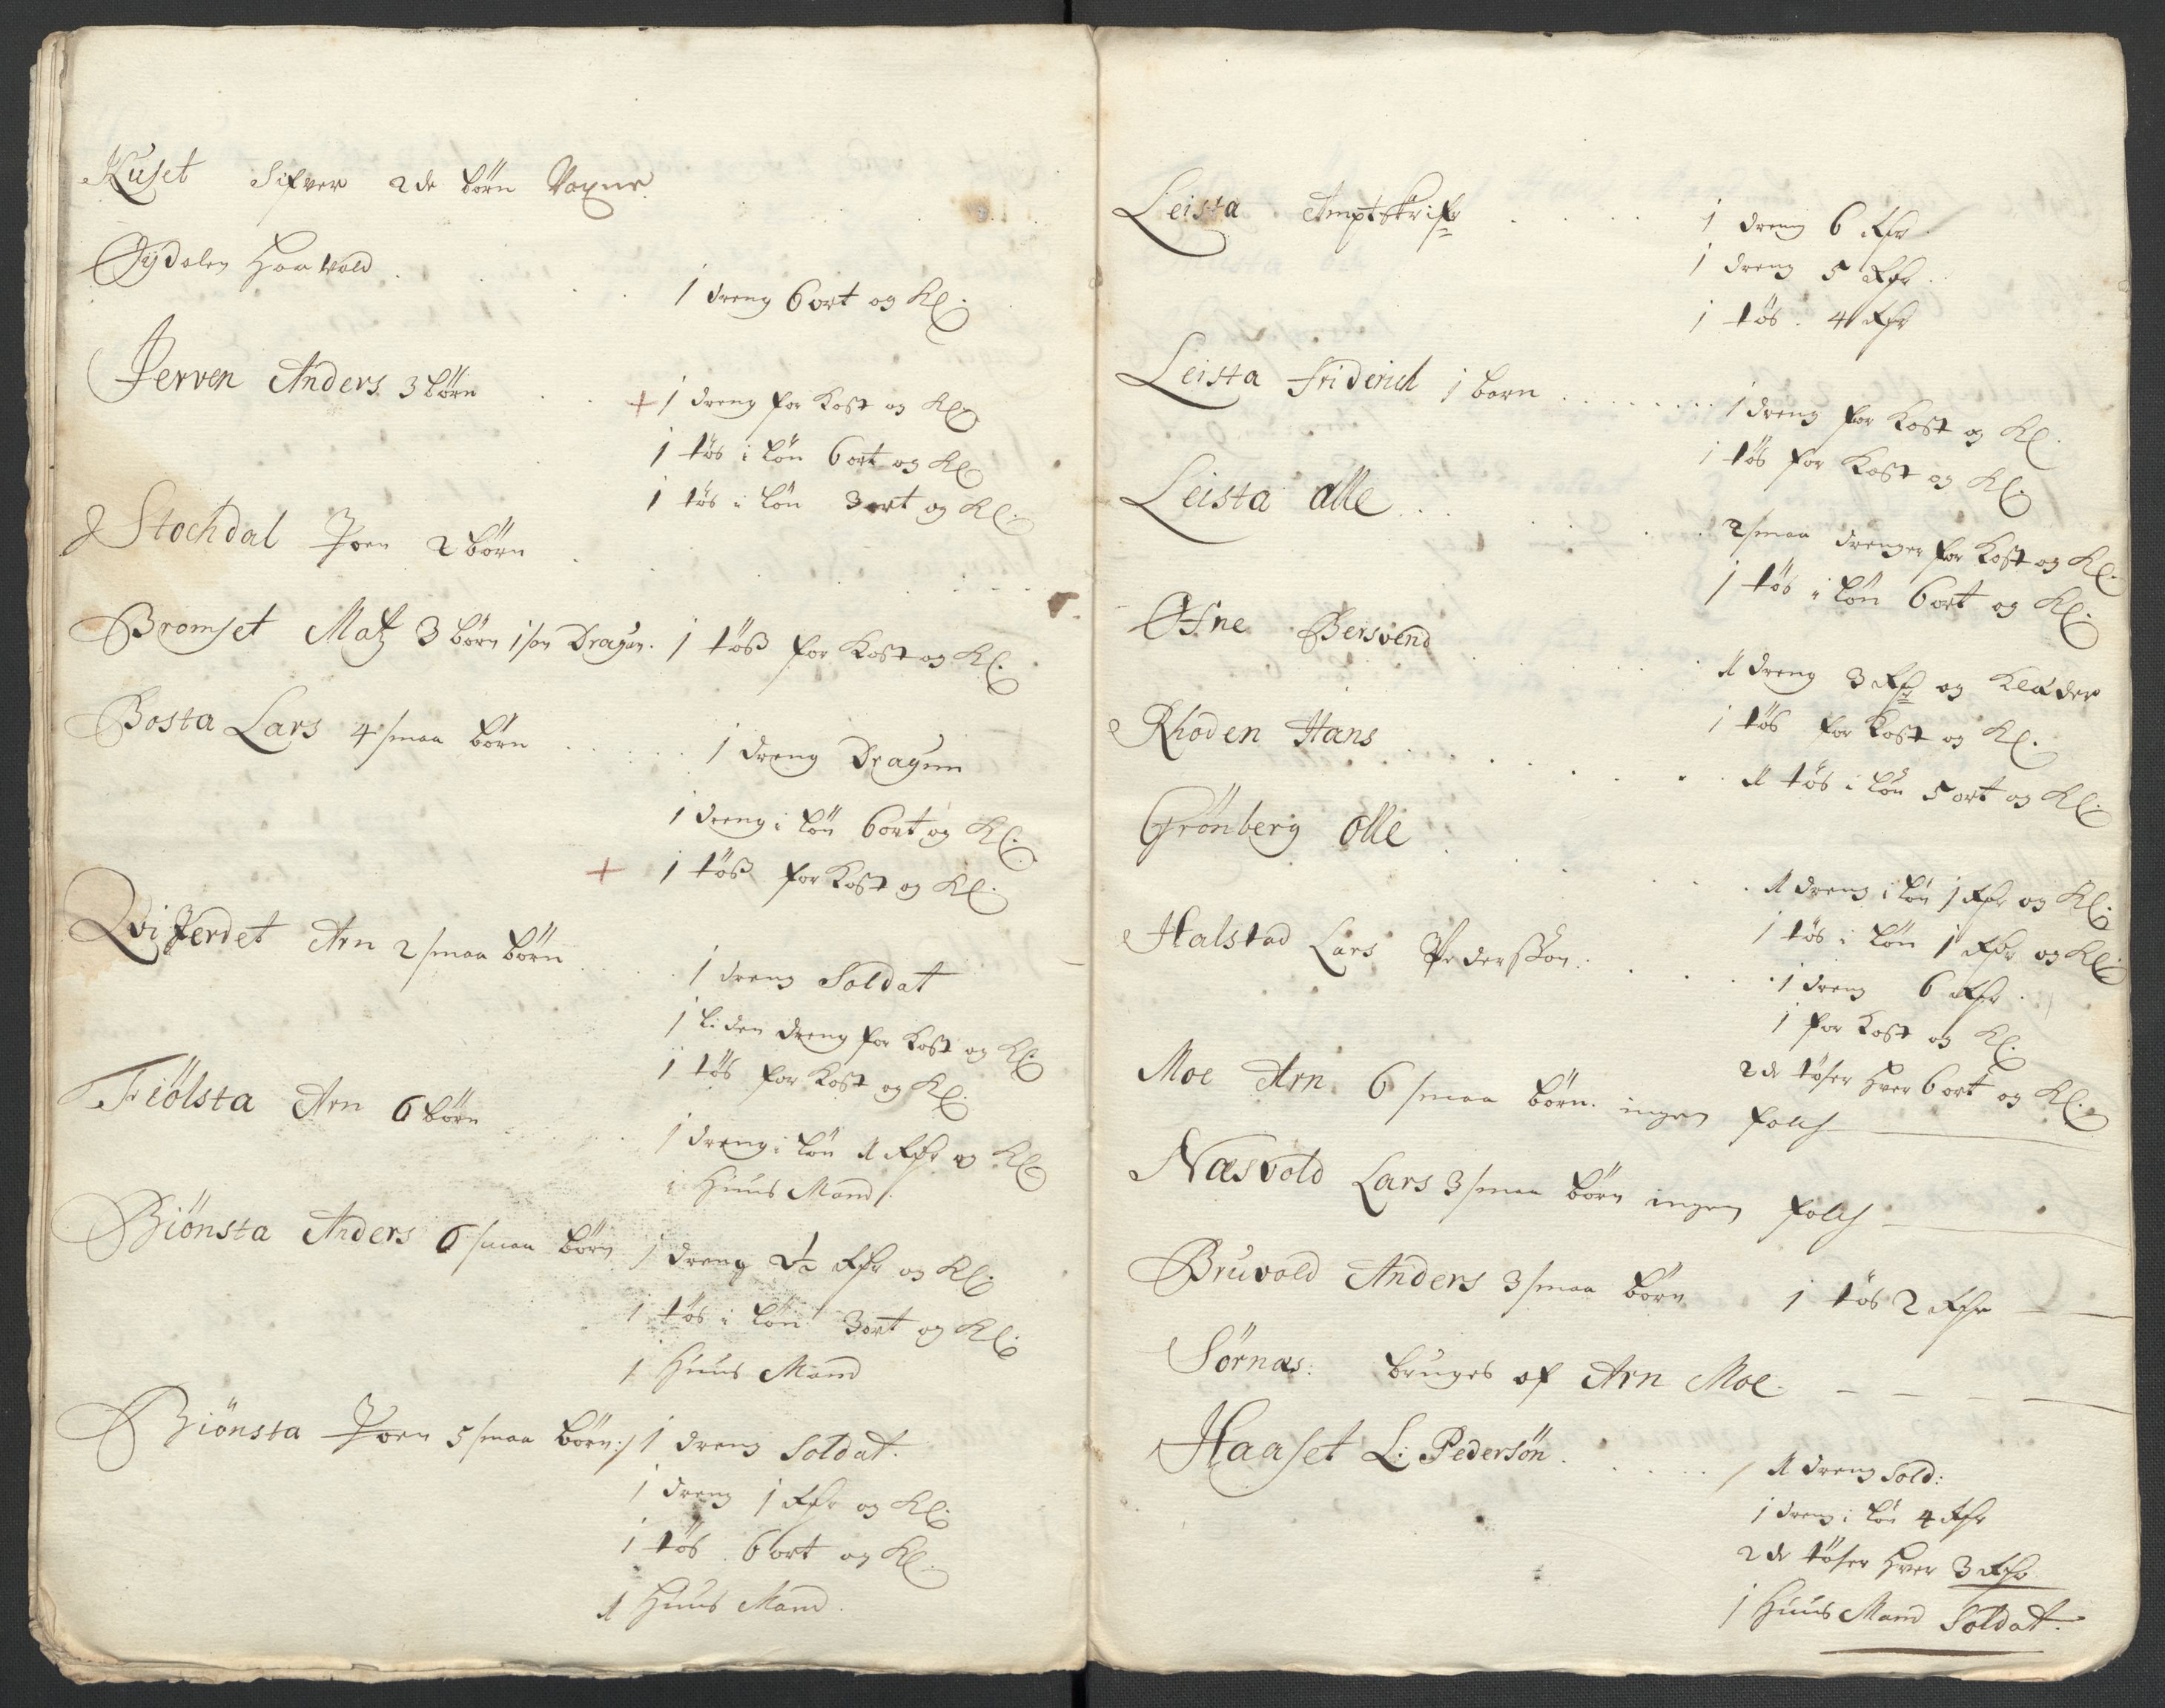 Kuset Sifver 2de börn Voxne
Öydalen Haavold . . . 1 dreng 6 ort og Kl.
Jerven Anders 3 börn . . + 1 dreng for Kost og Kl.
1 tös i lön 6 ort og Kl.
1 tös i lön 3 ort og Kl.
Stochdal Joen 2 börn
Bromset Matz 3 börn 1 sön Dragun. 1 töss for Kost og Kl.
Bosta Lars 4 smaa börn . . . 1 dreng Dragun
1 dreng i lön 6 ort og Kl.
+ 1 töss for Kost og Kl.
Qviferdet Arn 2 smaa börn . . 1 dreng Soldat
1 liden dreng for Kost og Kl.
1 tös for Kost og Kl.
Fiölsta Arn 6 börn . . 1 dreng i lön 1 Rdr og Kl.
1 Huus Mand.
Biönsta Anders 6 smaa börn 1 dreng 2½ Rdr og Kl.
1 tös i lön 3 ort og Kl.
1 Huus Mand
Biönsta Joen 5 smaa börn:/ 1 dreng Soldat.
1 dreng 1 Rdr og Kl.
1 tös 6 ort og Kl.
1 Huus Mand.
Leista Amptskrifr . . . 1 dreng 6 Rdr.
1 dreng 5 Rdr.
1 tös. 4 Rdr
Leista Friderich 1 barn . . . 1 dreng for Kost og Kl.
1 tös for Kost og Kl.
Leista Olle . . . 2 smaa drenger for Kost og Kl.
1 tös i lön 6 ort og Kl.
Ofne Bersvend . . . 1 dreng 3 Rdr og Klæder
1 tös for Kost og Kl.
Rhoden Hans . . . 1 tös i lön 5 ort og Kl.
Grönberg Olle . . . 1 dreng i lön 1 Rdr og Kl.
1 tös i lön 1 Rdr og Kl.
Halstad Lars Pedersson . . . 1 dreng 6 Rdr.
1 for Kost og Kl.
2de töser hver 6 ort og Kl.
Moe Arn 6 smaa börn. ingen folch
Næsvold Lars 3 smaa börn ingen folch
Bruvold Anders 3 smaa börn 1 tös 2 Rdr
Sörnæs: bruges af Arn Moe.
Haaset L: Pedersön . . . / 1 dreng Sold:
1 dreng i lön 4 Rdr
2de töser hver 3 Rdr
1 Huus Mand Soldat.